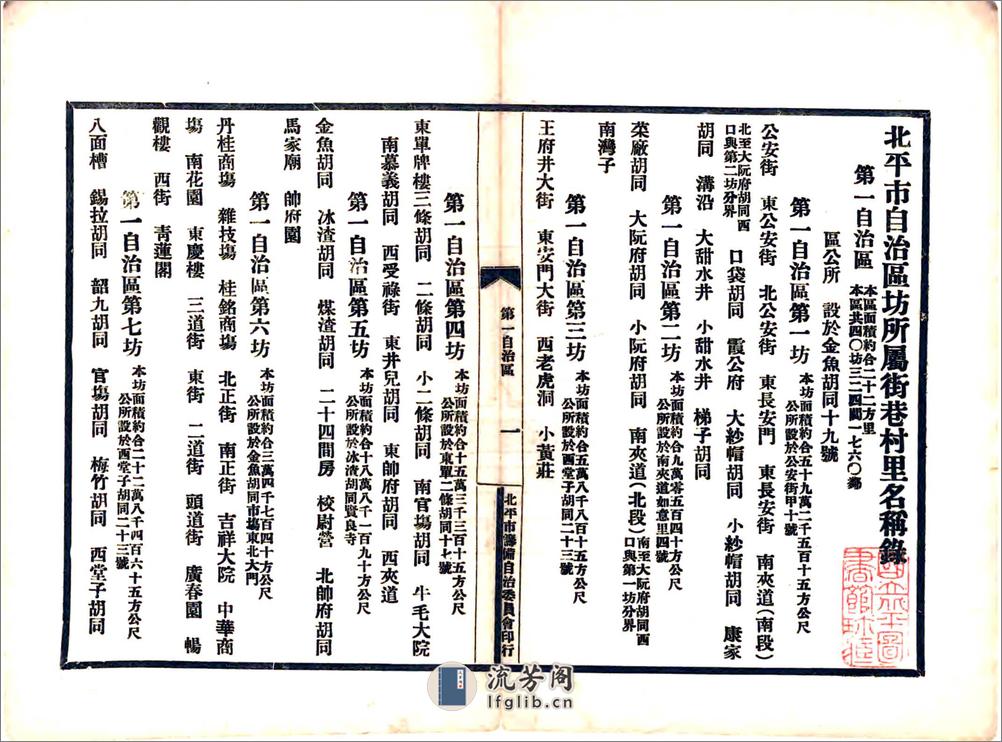 北平市自治區坊所屬街巷村里名稱錄
第一自治區 本區面積約合二十二方里
本區共四〇坊三二四閭一七六〇鄰
區公所 設於金魚胡同十九號
第一自治區第一坊 本坊面積約合五十九萬二千五百十五方公尺
公所設於公安街甲十號
公安街 東公安街 北公安街 東長安門 東長安街 南夾道(南段)
北至大阮府胡同西
口與第二坊分界 口袋胡同 霞公府 大紗帽胡同 小紗帽胡同 康家
胡同 溝沿 大甜水井 小甜水井 梯子胡同
第一自治區第二坊 本坊面積約合九萬零五百四十方公尺
公所設於南夾道如意里四號
菜廠胡同 大阮府胡同 小阮府胡同 南夾道(北段) 南至大阮府胡同西
口與第一坊分界
南灣子
第一自治區第三坊 本坊面積約合五萬八千八百十五方公尺
公所設於西堂子胡同二十三號
王府井大街 東安門大街 西老虎洞 小黃莊
第一自治區
一
北平市籌備自治委員會印行
第一自治區第四坊 本坊面積約合十五萬三千三百十五方公尺
公所設於東單二條胡同十七號
東單牌樓三條胡同 二條胡同 小二條胡同 南官場胡同 牛毛大院
南慕義胡同 西受祿街 東井兒胡同 東帥府胡同 西夾道
第一自治區第五坊 本坊面積約合十八萬八千一百九十方公尺
公所設於冰渣胡同賢良寺
金魚胡同 冰渣胡同 煤渣胡同 二十四間房 校尉營 北帥府胡同
馬家廟 帥府園
第一自治區第六坊 本坊面積約合三萬四千七百四十方公尺
公所設於金魚胡同市場東北大門
丹桂商場 雜技場 桂銘商場 北正街 南正街 吉祥大院 中華商
場 南花園 東慶樓 三道街 東街 二道街 頭道街 廣春園 暢
觀樓 西街 青蓮閣
第一自治區第七坊 本坊面積約合二十二萬八千四百六十五方公尺
公所設於西堂子胡同二十三號
八面槽 錫拉胡同 韶九胡同 官場胡同 梅竹胡同 西堂子胡同
流芳阁
lfglib.cn